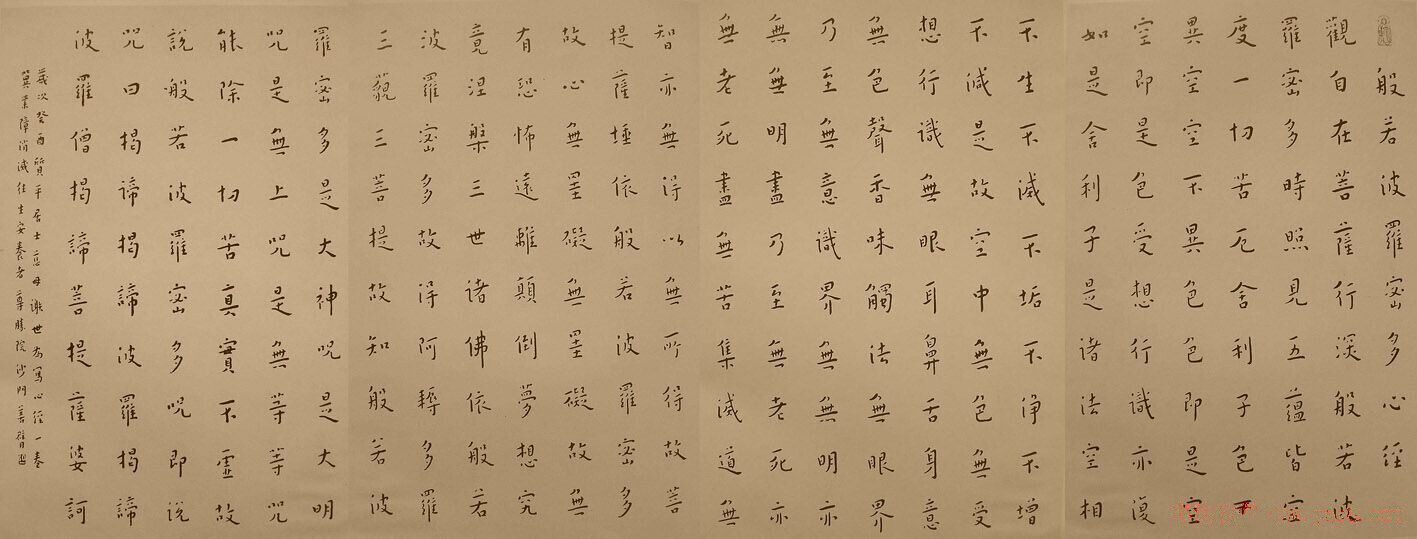 般若波羅蜜多心經
觀自在菩薩行深般若波
羅蜜多時照見五蘊皆空
度一切苦厄舍利子色不
異空空不異色色即是空
空即是色受想行識亦復
如是舍利子是諸法空相
不生不滅不垢不淨不增
不減是故空中無色無受
想行識無眼耳鼻舌身意
無色聲香味觸法無眼界
乃至無意識界無無明亦
無無明盡乃至無老死亦
無老死盡無苦集滅道無
智亦無得以無所得故菩
提薩埵依般若波羅蜜多
故心無罣礙無罣礙故無
有恐怖遠離顛倒夢想究
竟涅槃三世諸佛依般若
波羅蜜多故得阿耨多羅
三藐三菩提故知般若波
羅蜜多是大神呪是大明
呪是無上呪是無等等呪
能除一切苦真實不虛故
說般若波羅蜜多呪即說
呪曰揭諦揭諦波羅揭諦
波羅僧揭諦菩提薩婆訶
歲次癸酉質平居士慈母謝世為寫心經一卷
冀業障消滅往生安養者尊勝院沙門善臂